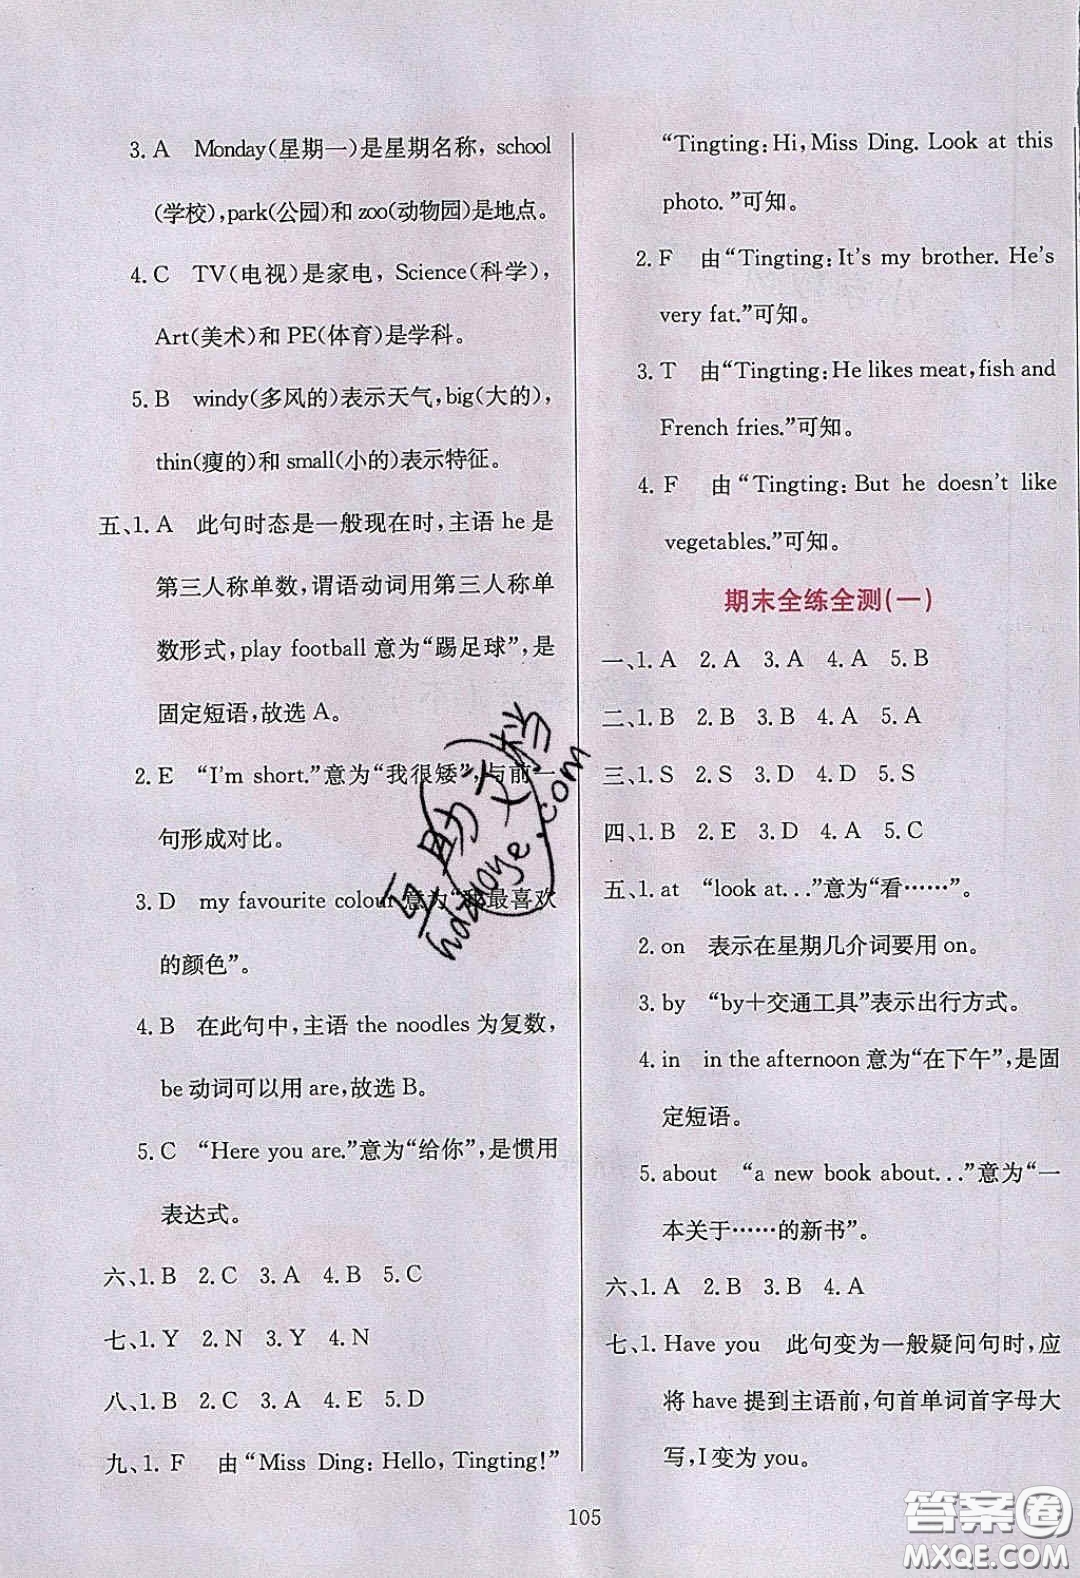 3. A Monday(星期一)是星期名称，school
(学校)，park(公园)和 zoo(动物园)是地点。
4. C TV(电视)是家电，Science(科学)，
Art(美术)和 PE(体育)是学科。
5. B windy(多风的)表示天气，big(大的)，
thin(瘦的)和 small(小的)表示特征。
五、1. A 此句时态是一般现在时，主语 he 是
第三人称单数，谓语动词用第三人称单
数形式，play football 意为“踢足球”，是
固定短语，故选 A。
2. E “I'm short.”意为“我很矮”，与前一
句形成对比。
3. D my favourite colour 意为“我最喜欢
的颜色”。
4. B 在此句中，主语 the noodles 为复数，
be 动词可以用 are，故选 B。
5. C “Here you are.”意为“给你”，是惯用
表达式。
六、1. B 2. C 3. A 4. B 5. C
七、1. Y 2. N 3. Y 4. N
八、1. B 2. C 3. A 4. E 5. D
九、1. F 由“Miss Ding: Hello, Tingting!”
“Tingting: Hi, Miss Ding. Look at this
photo.”可知。
2. F 由“Tingting: It's my brother. He's
very fat.”可知。
3. T 由“Tingting: He likes meat, fish and
French fries.”可知。
4. F 由“Tingting: But he doesn't like
vegetables.”可知。
期末全练全测(一)
一、1. A 2. A 3. A 4. A 5. B
二、1. B 2. B 3. B 4. A 5. A
三、1. S 2. S 3. D 4. D 5. S
四、1. B 2. E 3. D 4. A 5. C
五、1. at “look at...”意为“看……”。
2. on 表示在星期几介词要用 on。
3. by “by＋交通工具”表示出行方式。
4. in in the afternoon 意为“在下午”，是固
定短语。
5. about “a new book about...”意为“一
本关于……的新书”。
六、1. A 2. B 3. B 4. A
七、1. Have you 此句变为一般疑问句时，应
将 have 提到主语前，句首单词首字母大
写，I 变为 you。
105
答案圈
MXQE.COM